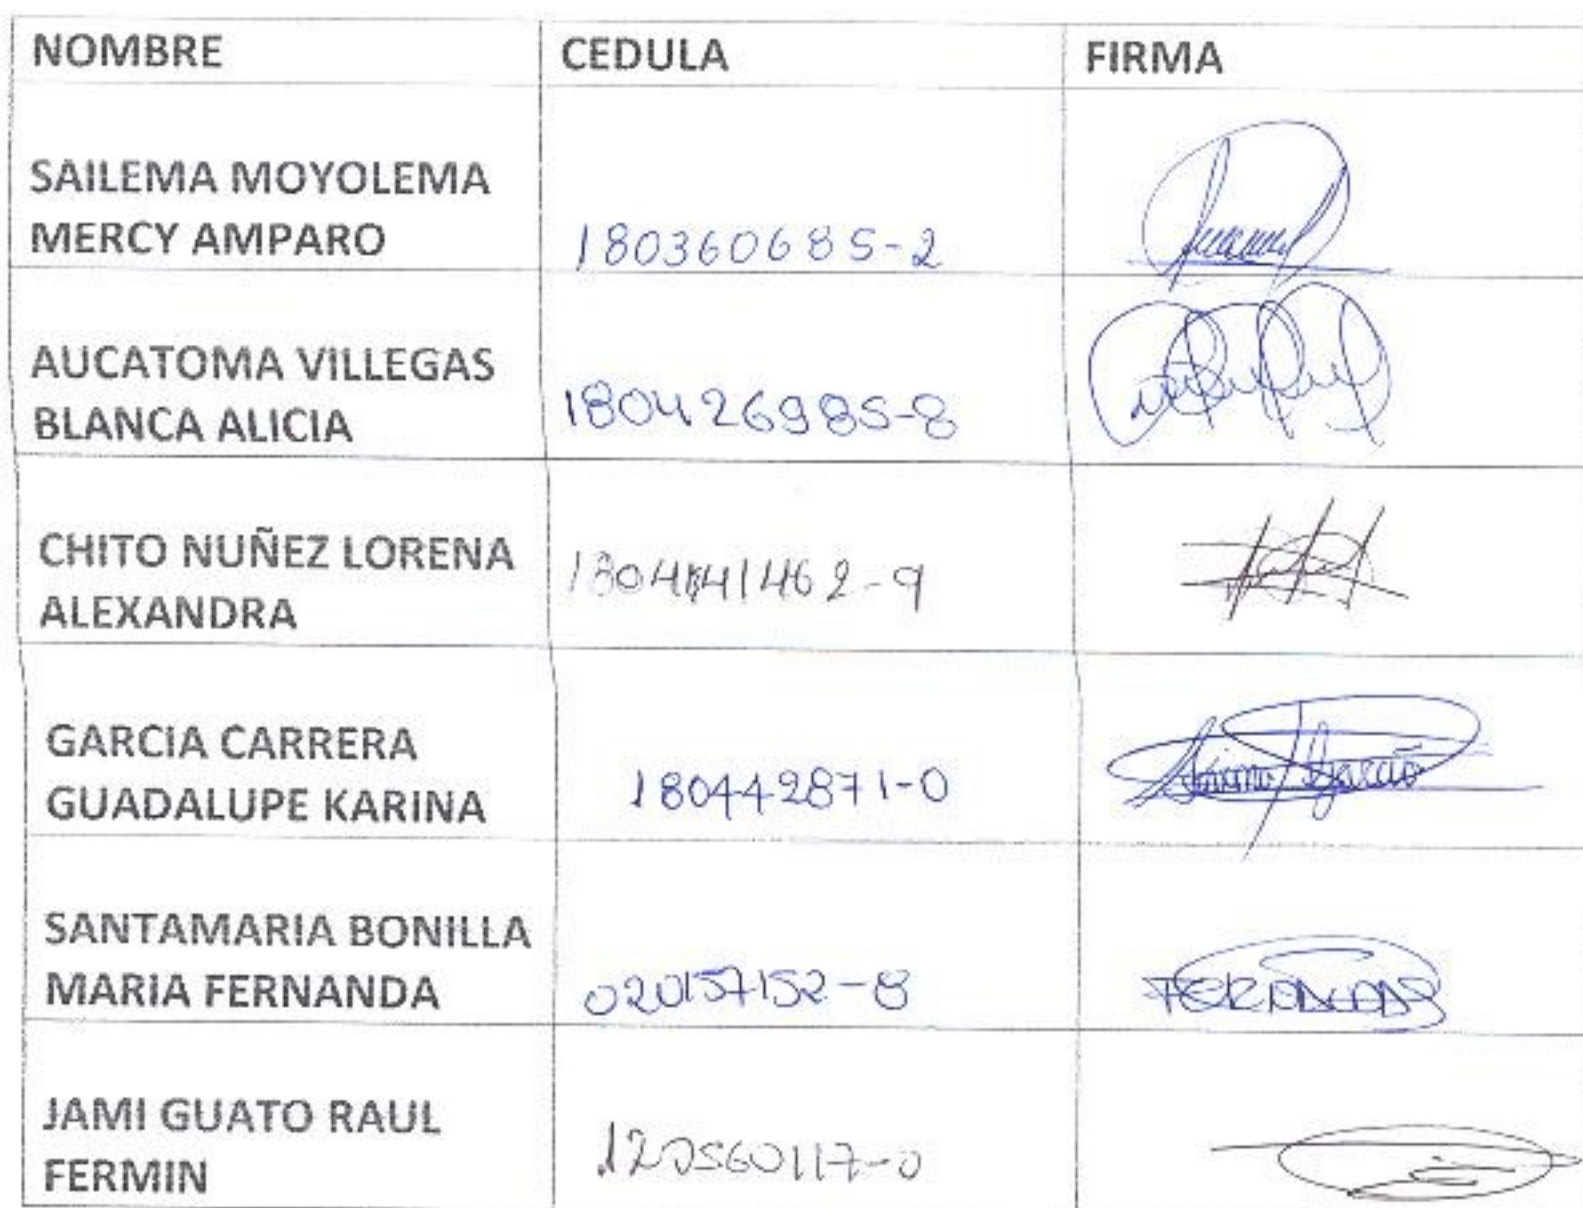 NOMBRE CEDULA FIRMA
SAILEMA MOYOLEMA
MERCY AMPARO 180360685-2
AUCATOMA VILLEGAS
BLANCA ALICIA 180426985-8
CHITO NUÑEZ LORENA
ALEXANDRA 180441462-9
GARCIA CARRERA
GUADALUPE KARINA 180442871-0 Karina Garcia
SANTAMARIA BONILLA
MARIA FERNANDA 020157152-8 FERNANDA
JAMI GUATO RAUL
FERMIN 120560117-0